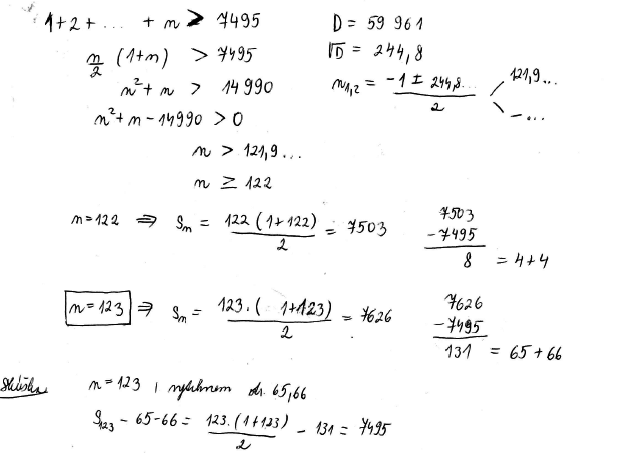 1+2+... + n > 7495
n/2 (1+n) > 7495
n² + n > 14990
n² + n - 14990 > 0
n > 121,9...
n ≥ 122
D = 59 961
√D = 244,8
n₁,₂ = (-1 ± 244,8...)/2
121,9...
-...
n=122 ⇒ Sₙ = 122(1+122)/2 = 7503
7503
-7495
8 = 4+4
n=123 ⇒ Sₙ = 123.(1+123)/2 = 7626
7626
-7495
131 = 65+66
n=123 65,66
S₁₂₃ - 65-66 = 123.(1+123)/2 - 131 = 7495